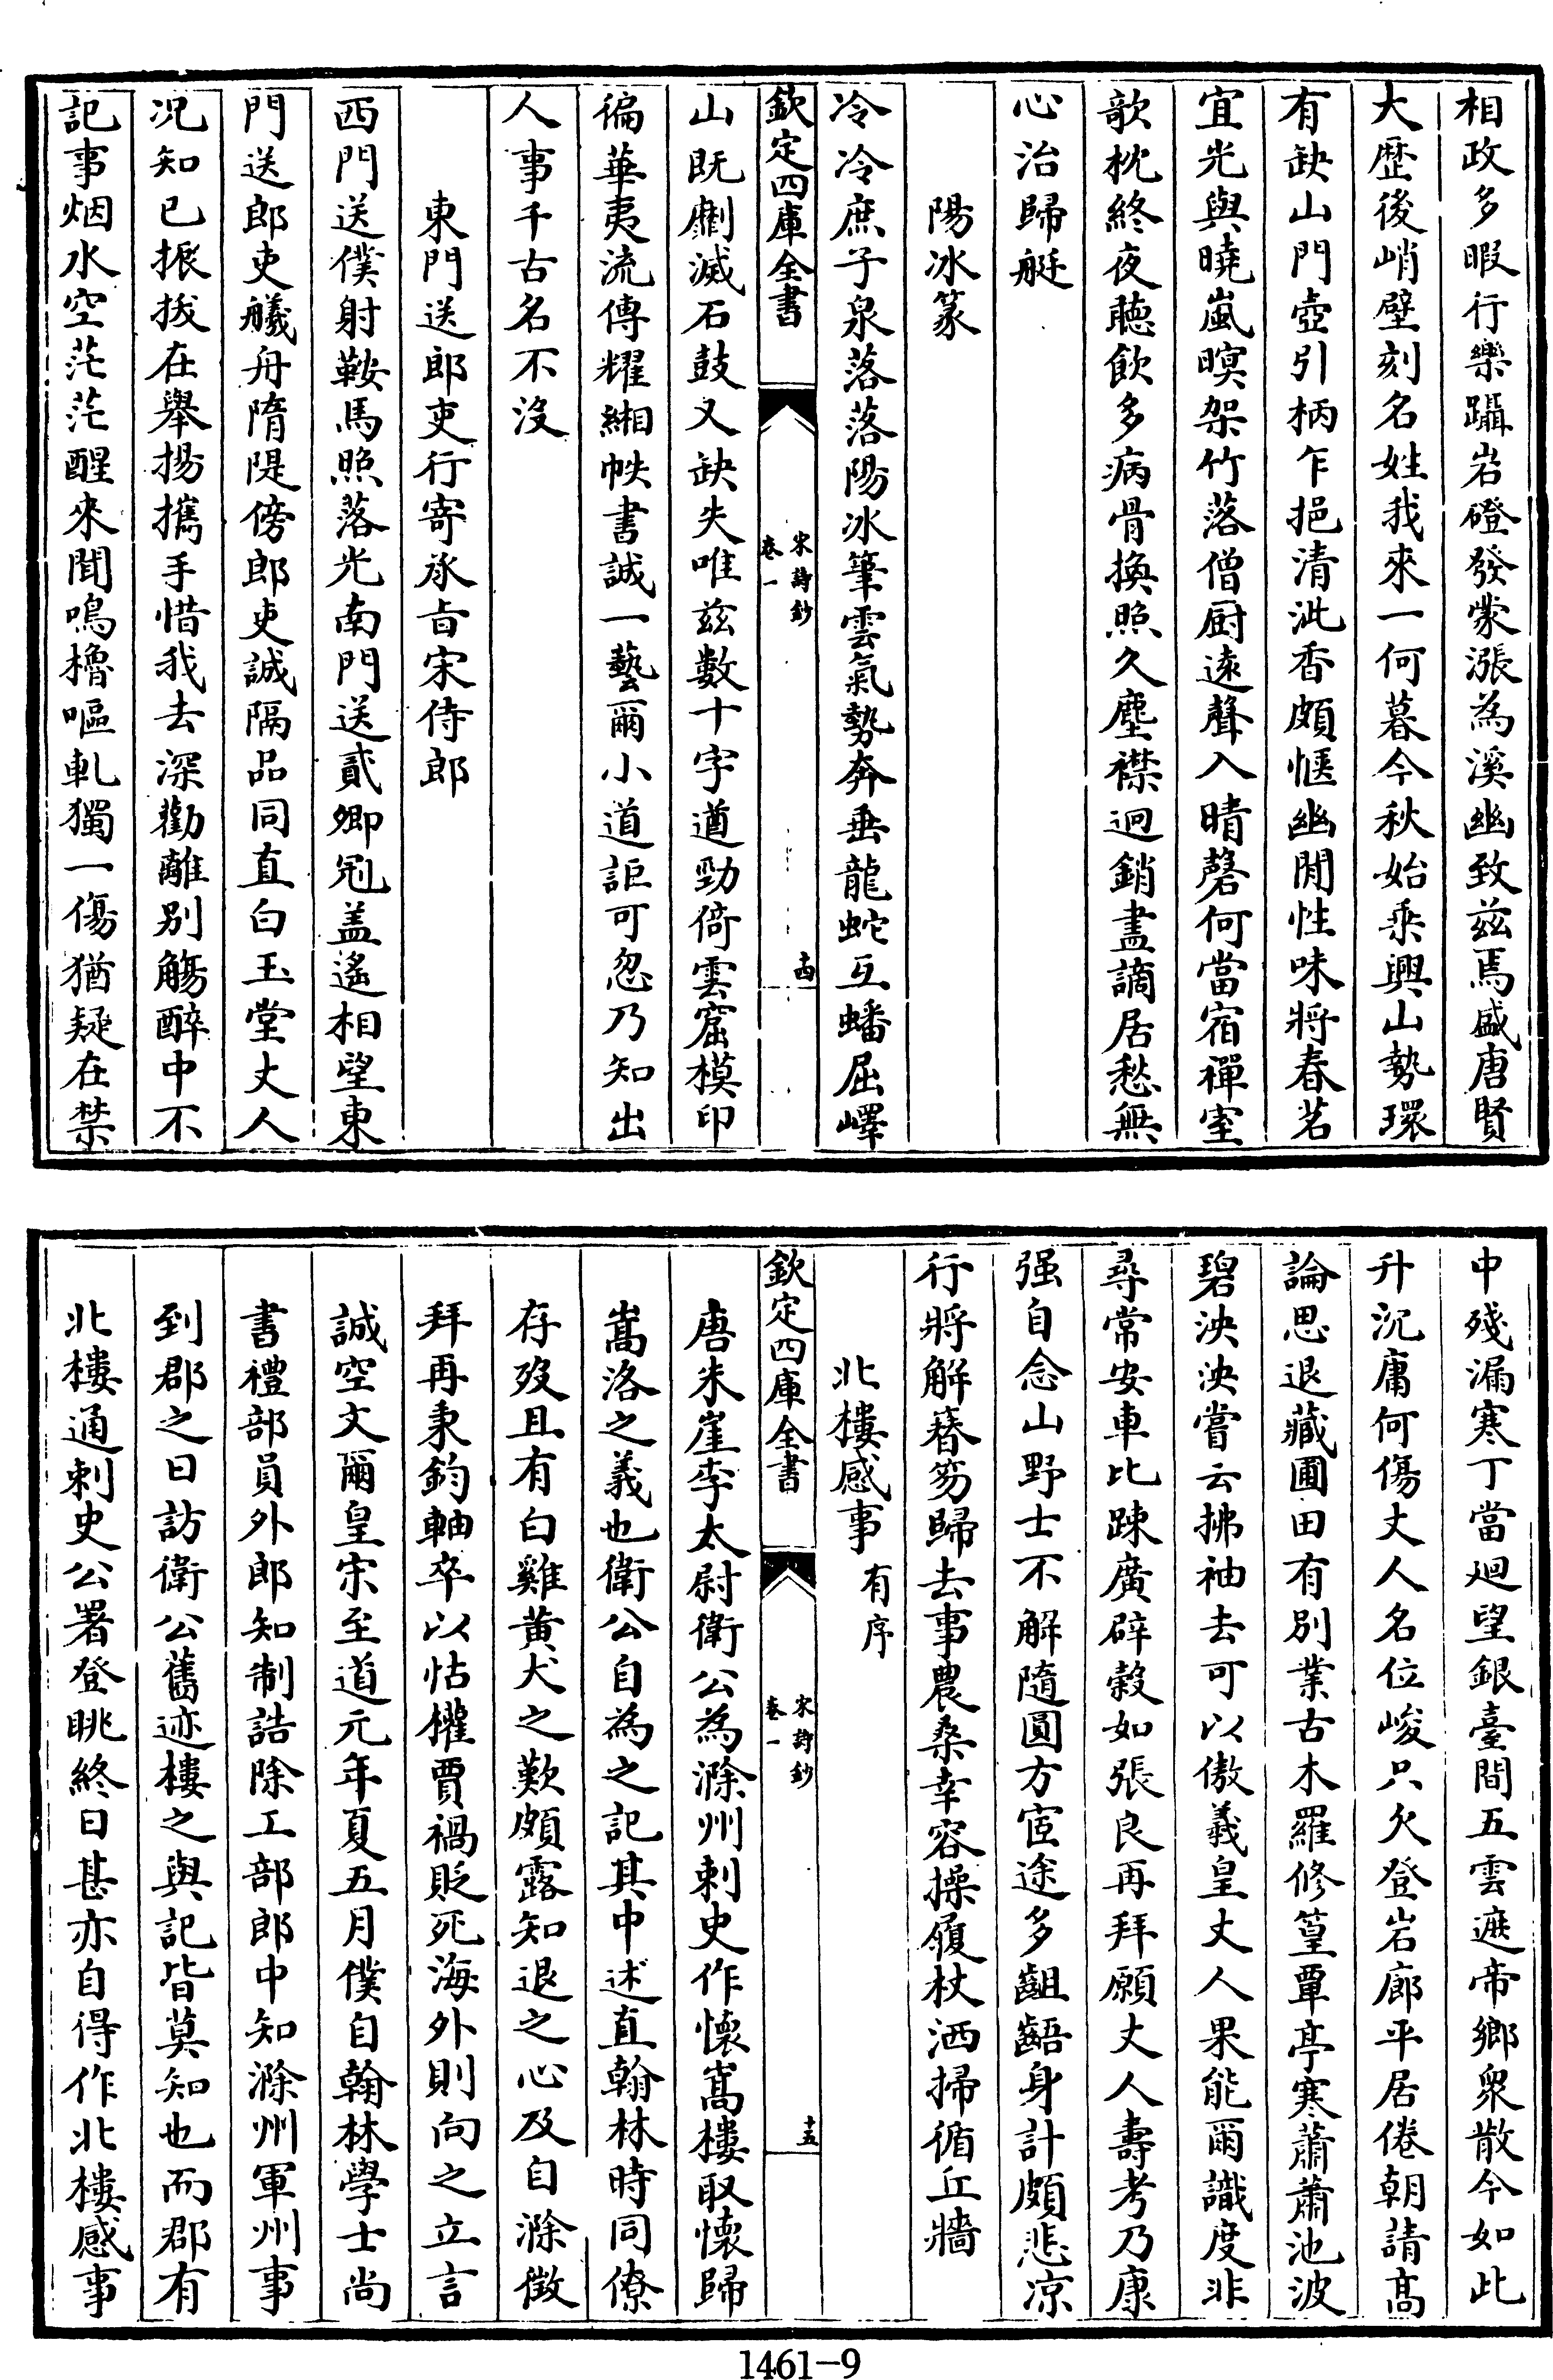 相政多暇行樂躡岩磴發蒙漲為溪幽致兹焉盛唐賢
大歴後峭壁刻名姓我來一何暮今秋始乘興山勢環
有缺山門壺引柄乍挹清泚香頗愜幽閒性味將春茗
宜光與曉嵐暝架竹落僧厨逺聲入晴磬何當宿禪室
欹枕終夜聽飲多病骨換照久塵襟迥銷盡謫居愁無
心治歸艇
陽冰篆
冷冷庶子泉落落陽冰筆雲氣勢奔垂龍蛇互蟠屈嶧
欽定四庫全書
宋詩鈔
卷一
十四
山既劘滅石鼓又缺失唯兹數十字遒勁倚雲窟模印
徧華夷流傳耀緗帙書誠一藝爾小道詎可忽乃知出
人事千古名不沒
東門送郎吏行寄承㫖宋侍郎
西門送僕射鞍馬照落光南門送貳卿冠盖遙相望東
門送郎吏艤舟隋隄傍郎吏誠隔品同直白玉堂丈人
况知已振拔在舉揚攜手惜我去深勸離别觴醉中不
記事烟水空茫茫醒來聞鳴櫓嘔軋獨一傷猶疑在禁
中殘漏寒丁當廻望銀臺間五雲遮帝鄉衆散今如此
升沉庸何傷丈人名位峻只欠登岩廊平居倦朝請髙
論思退藏圃田有別業古木羅修篁覃亭寒蕭蕭池波
碧泱泱嘗云拂袖去可以傲羲皇丈人果能爾識度非
尋常安車比踈廣辟榖如張良再拜願丈人壽考乃康
强自念山野士不解隨圓方宦途多齟齬身計頗悲凉
行將解簪笏歸去事農桑幸容操履杖洒掃循丘牆
北樓感事 有序
欽定四庫全書
宋詩鈔
卷一
十五
唐朱崖李太尉衛公為滁州刺史作懷嵩樓取懷歸
嵩洛之義也衛公自為之記其中述直翰林時同僚
存殁且有白雞黄犬之歎頗露知退之心及自滁徴
拜再秉鈞軸卒以怙權賈禍貶死海外則向之立言
誠空文爾皇宋至道元年夏五月僕自翰林學士尚
書禮部員外郎知制誥除工部郎中知滁州軍州事
到郡之日訪衛公舊迹樓之與記皆莫知也而郡有
北樓通刺史公署登眺終日甚亦自得作北樓感事
1461-9